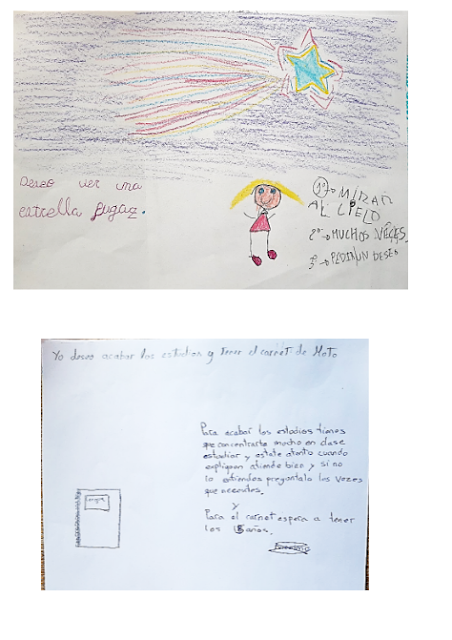 Deseo ver una
estrella fugaz.
1º→ MIRAR
AL CIELO
2º→ MUCHOS VECES.
3º→ PEDIR UN DESEO
Yo deseo acabar los estudios y tener el carnet de Moto
Para acabar los estudios tienes
que concentrarte mucho en clase
estudiar y estate atento cuando
expliquen atiende bien y si no
lo entiendes pregúntalo las vezes
que necesites.
y
Para el carnet espera a tener
los años.